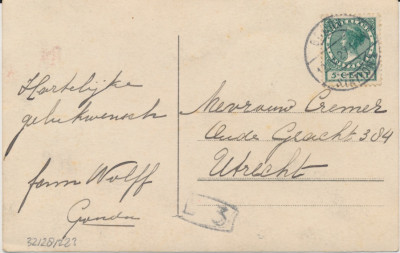 Hartelijke
gelukwensch
fam Wolff
Gouda
Mevrouw Cremer
Oude Gracht 384
Utrecht
5 CENT
3